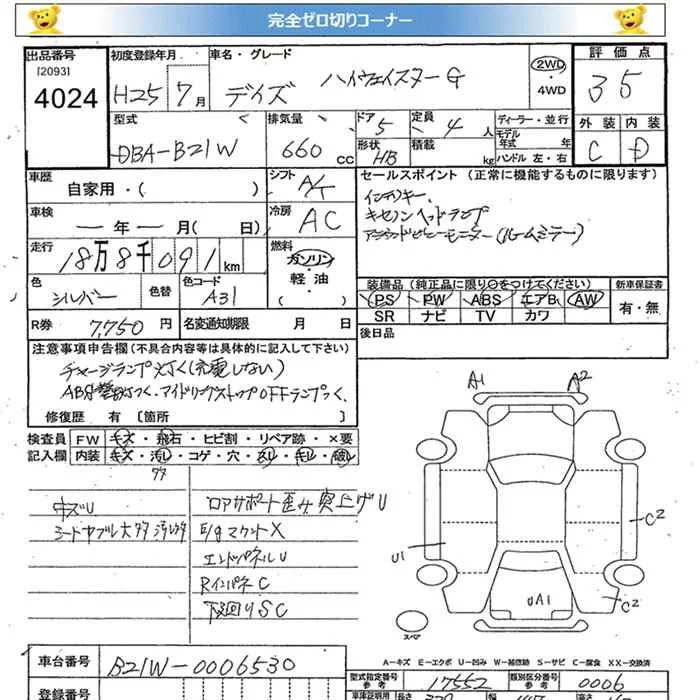 完全ゼロ切りコーナー
出品番号 120931
4024
初度登録年月 H25 7月
車名・グレード デイズ ハイウェイスターG
2WD・4WD
評価点 35
外装 C 内装 D
型式 DBA-B21W
排気量 660 cc
ドア 5 定員 4人
形状 HB 積載 kg
ディーラー・並行
モデル年式 年
ハンドル 左・右
車歴 自家用・( )
シフト
車検 ―年―月( 日)
冷房 AC
走行 18万8千091km
燃料 ガソリン 軽油 ( )
色 シルバー 色替 色コード A31
R券 7,750円 名変通知期限 月 日
セールスポイント (正常に機能するものに限ります)
インテリキー
キセノンヘッドランプ
アラウンドビューモーター(ルームミラー)
装備品 (純正品に限り○をつけてください)
新車保証書
PS PW ABS エアB AW
SR ナビ TV カワ
有・無
後日品
注意事項申告欄(不具合内容等は具体的に記入して下さい)
チャージランプ灯く(充電しない)
ABS警告灯つく、アイドリングストップOFFランプつく、
修復歴 有 〔箇所 〕
検査員記入欄
FW キズ・飛石・ヒビ割・リペア跡・×要
内装 キズ・汚れ・コゲ・穴・スレ・キレ・破レ
キズU
シートヤブレ大
ロアサポート歪み突上げU
E/gマウントX
エンドパネルU
RインパネC
下廻りSC
A1
A2
C2
U1
UA1
C2
スペア
A-キズ E-エクボ U-凹み W-補修跡 S-サビ C-腐食 XX-交換済
車台番号 B21W-0006530
型式指定番号 参考 17552
類別区分番号 参考 0006
登録番号
車庫証明用 長さ 幅